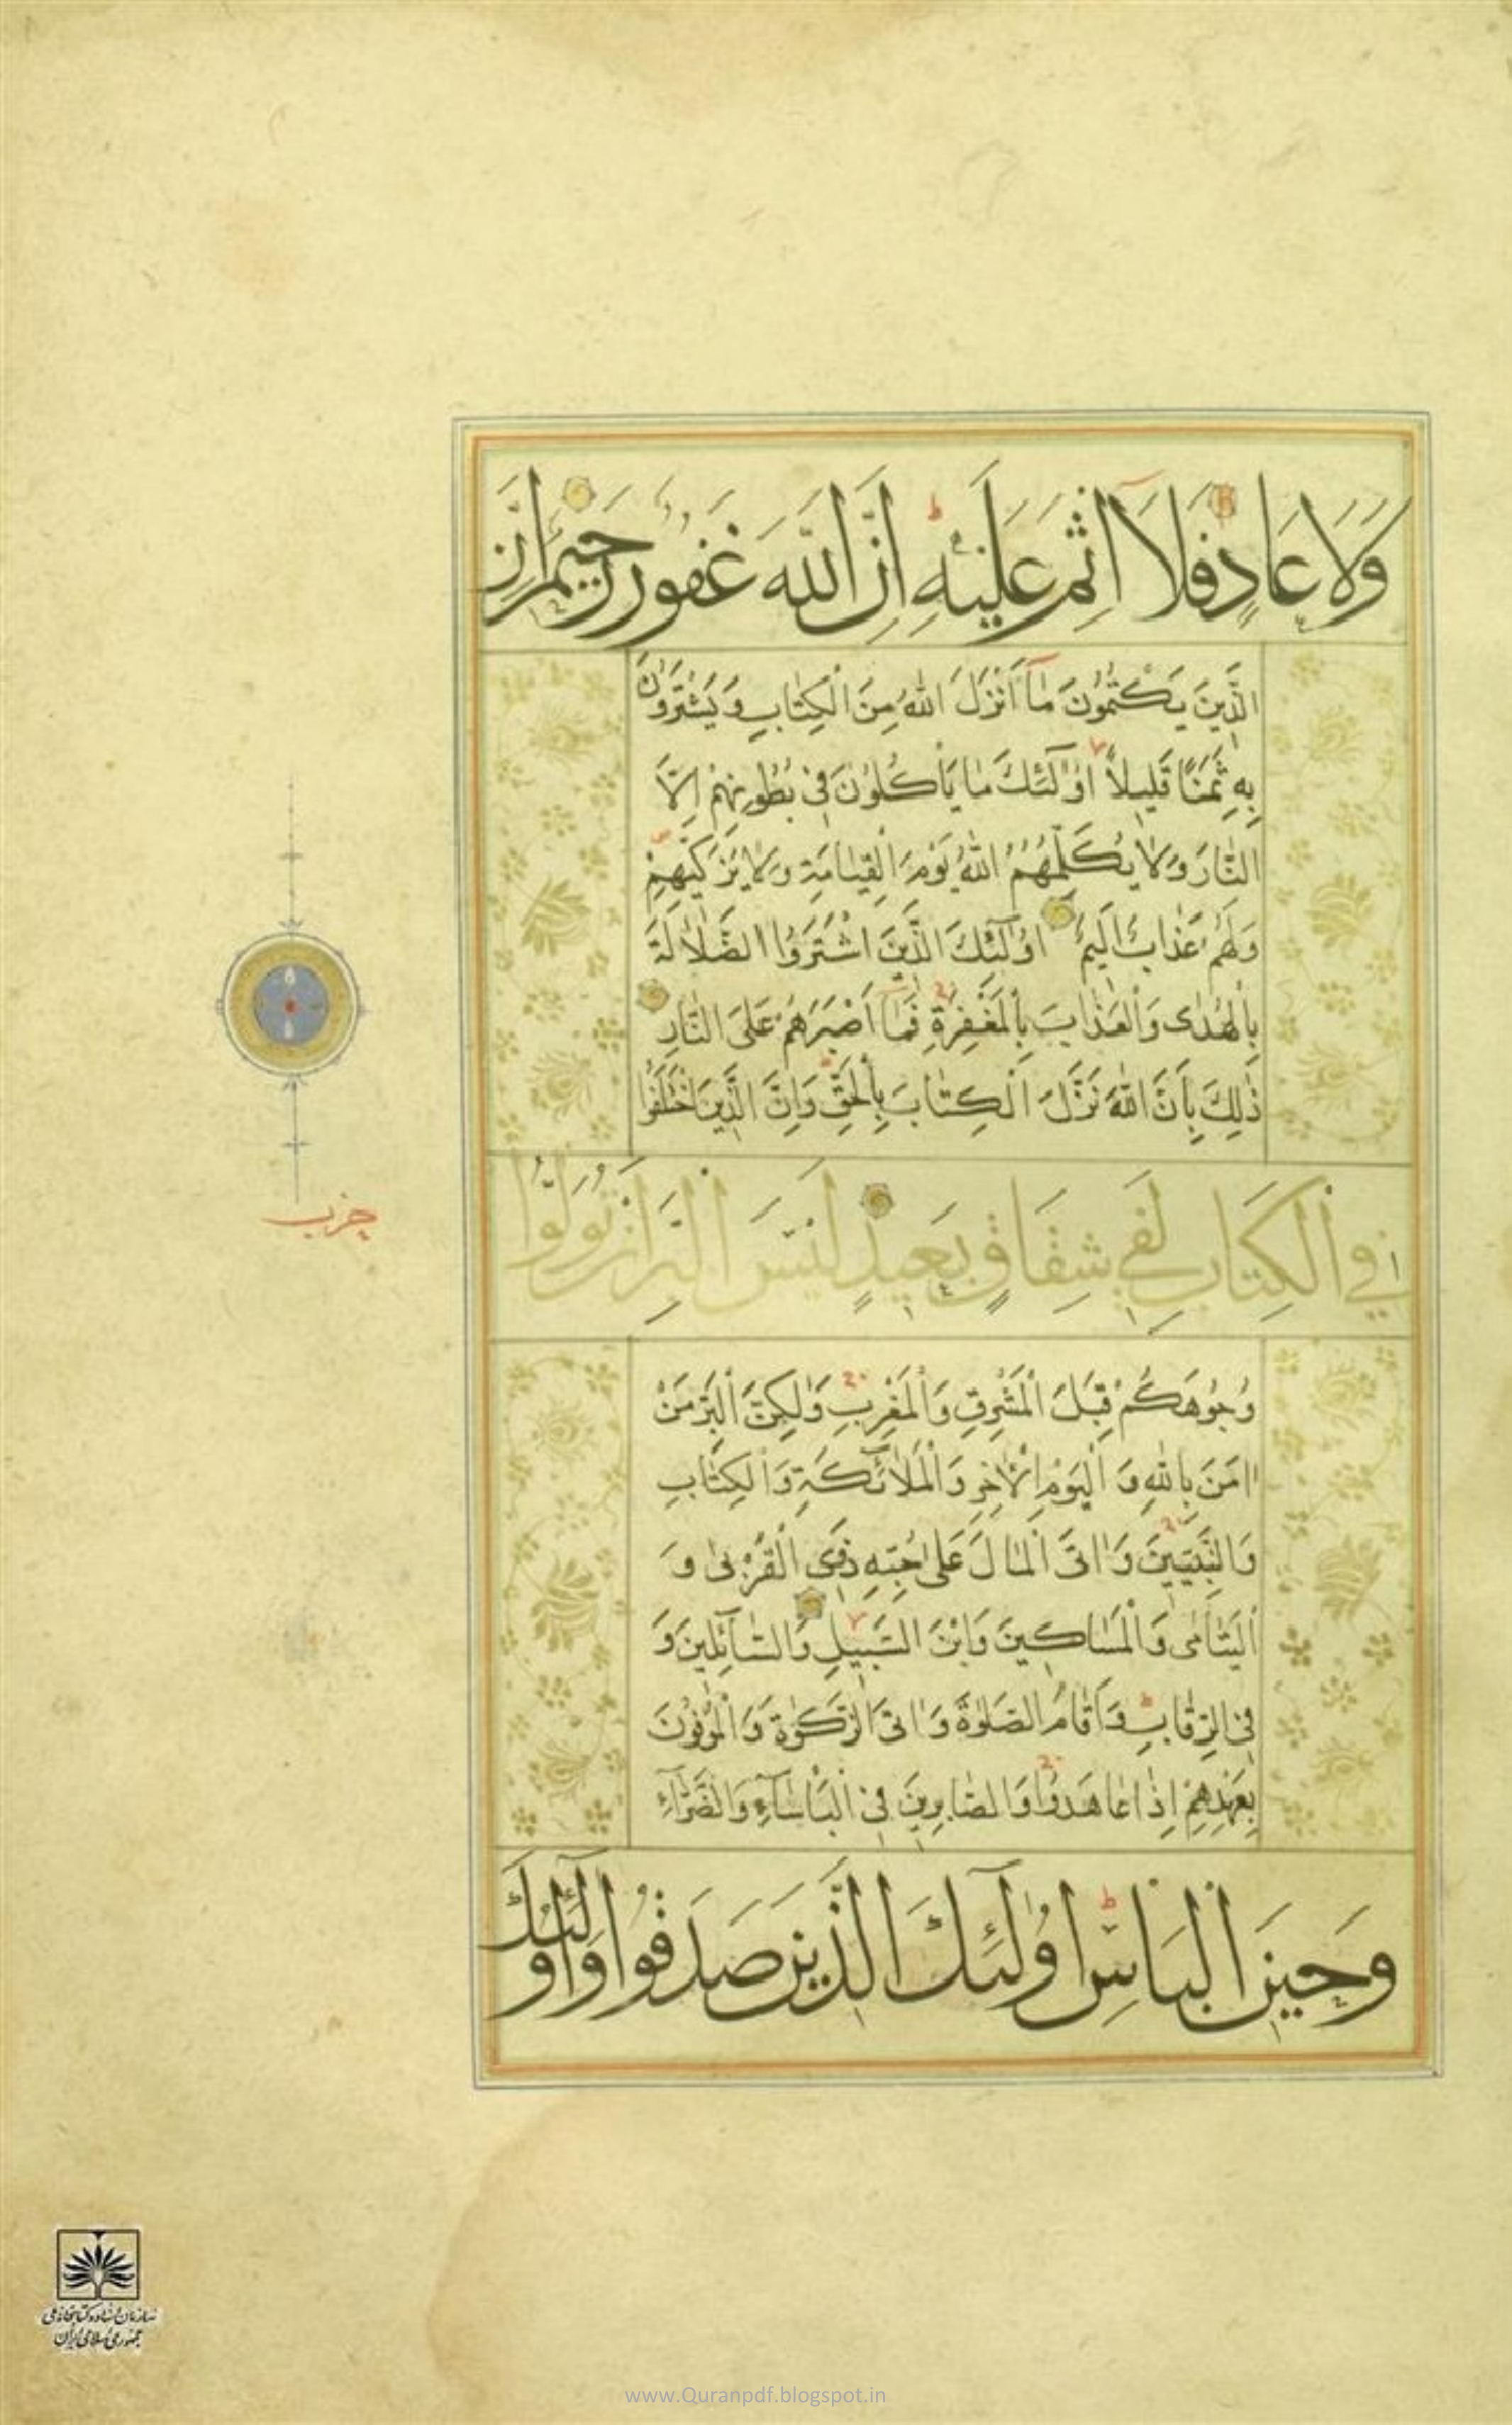 وَلَا عَادٍ فَلَا اِثْمَ عَلَيْهِ اِنَّ اللّٰهَ غَفُورٌ رَحِيمٌ اِنَّ
الَّذِينَ يَكْتُمُونَ مَآ اَنْزَلَ اللّٰهُ مِنَ الْكِتَابِ وَيَشْتَرُونَ
بِهِ ثَمَنًا قَلِيلًا اُولٰٓئِكَ مَا يَأْكُلُونَ فِي بُطُونِهِمْ اِلَّا
النَّارَ وَلَا يُكَلِّمُهُمُ اللّٰهُ يَوْمَ الْقِيَامَةِ وَلَا يُزَكِّيهِمْ
وَلَهُمْ عَذَابٌ اَلِيمٌ اُولٰٓئِكَ الَّذِينَ اشْتَرَوُا الضَّلَالَةَ
بِالْهُدٰى وَالْعَذَابَ بِالْمَغْفِرَةِ فَمَآ اَصْبَرَهُمْ عَلَى النَّارِ
ذٰلِكَ بِاَنَّ اللّٰهَ نَزَّلَ الْكِتَابَ بِالْحَقِّ وَاِنَّ الَّذِينَ اخْتَلَفُوا
فِي الْكِتَابِ لَفِي شِقَاقٍ بَعِيدٍ لَيْسَ الْبِرَّ اَنْ تُوَلُّوا
حزب
وُجُوهَكُمْ قِبَلَ الْمَشْرِقِ وَالْمَغْرِبِ وَلٰكِنَّ الْبِرَّ مَنْ
اٰمَنَ بِاللّٰهِ وَ الْيَوْمِ الْاٰخِرِ وَالْمَلَآئِكَةِ وَالْكِتَابِ
وَالنَّبِيِّينَ وَاٰتَى الْمَالَ عَلٰى حُبِّهِ ذَوِي الْقُرْبٰى وَ
الْيَتَامٰى وَالْمَسَاكِينَ وَابْنَ السَّبِيلِ وَالسَّآئِلِينَ وَ
فِي الرِّقَابِ وَاَقَامَ الصَّلٰوةَ وَاٰتَى الزَّكٰوةَ وَالْمُوفُونَ
بِعَهْدِهِمْ اِذَا عَاهَدُوا وَالصَّابِرِينَ فِي الْبَأْسَآءِ وَالضَّرَّآءِ
وَحِينَ الْبَأْسِ اُولٰٓئِكَ الَّذِينَ صَدَقُوا وَاُولٰٓئِكَ
سازمان اسناد و کتابخانه ملی
جمهوری اسلامی ایران
www.Quranpdf.blogspot.in